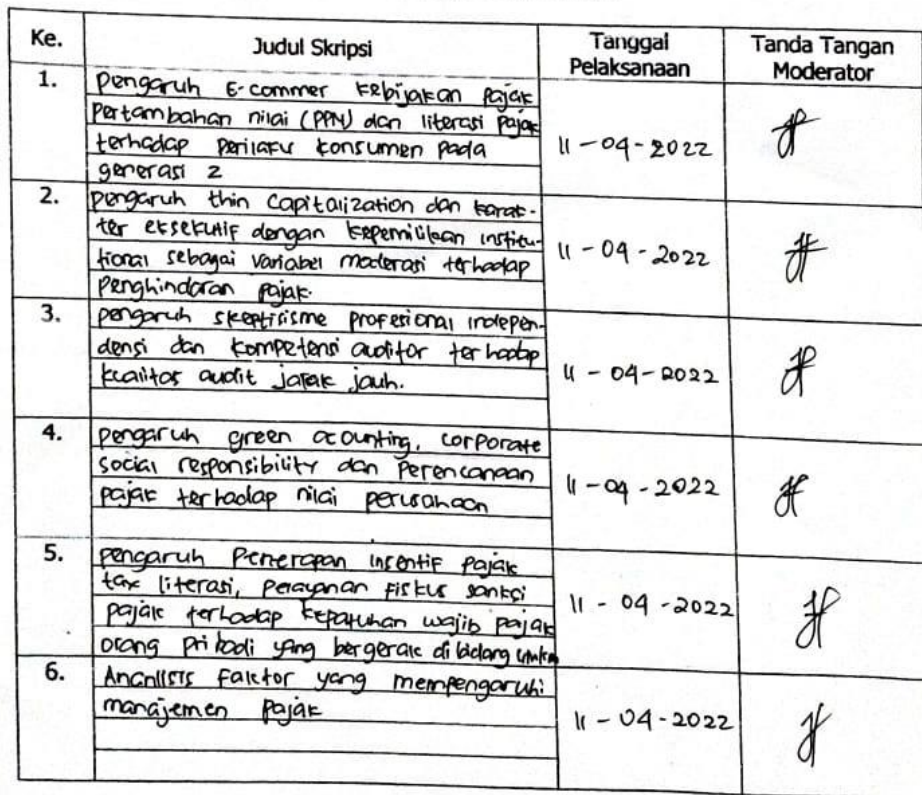 Ke. Judul Skripsi Tanggal Pelaksanaan Tanda Tangan Moderator
1. Pengaruh E-commer kebijakan Pajak
Pertambahan nilai (PPN) dan literasi Pajak
terhadap perilaku konsumen pada
generasi z
11-04-2022
2. pengaruh thin capitalization dan karak-
ter eksekutif dengan kepemilikan institu-
tional sebagai variabel moderasi terhadap
Penghindaran pajak.
11-04-2022
3. pengaruh skeptisisme profesional indepen-
densi dan kompetensi auditor terhadap
kualitas audit jarak jauh.
11-04-2022
4. pengaruh green acounting, corporate
social responsibility dan Perencanaan
pajak terhadap nilai perusahaan
11-04-2022
5. pengaruh Penerapan insentif pajak
tax literasi, pelayanan fiskus sanksi
pajak terhadap kepatuhan wajib pajak
orang pribadi yang bergerak di bidang umkm
11-04-2022
6. Analisis faktor yang mempengaruhi
manajemen pajak
11-04-2022